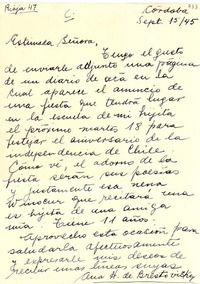 Rioja 47
Córdoba
Sept. 15/45
Estimada Señora,
Tengo el gusto
de enviarle adjunto una página
de un diario de acá en la
cual aparece el anuncio de
una fiesta que tendrá lugar
en la escuela de mi hijita
el próximo martes 18 para
festejar el aniversario de la
independencia de Chile.
Como vé, el adorno de la
fiesta serán sus poesías
y justamente esa nena
Winocur que recitará una
es hijita de una amiga
mía. Tiene 11 años.
Aprovecho esta ocasión para
saludarla afectuosamente
y expresarle mis deseos de
recibir unas líneas suyas.
Ana H. de